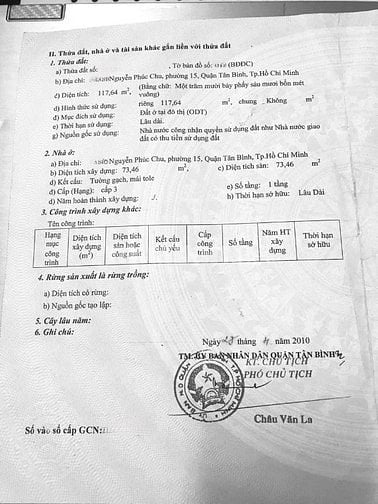 II. Thửa đất, nhà ở và tài sản khác gắn liền với thửa đất
1. Thửa đất:
a) Thửa đất số: , Tờ bản đồ số: (BĐĐC)
b) Địa chỉ: Nguyễn Phúc Chu, phường 15, Quận Tân Bình, Tp.Hồ Chí Minh
c) Diện tích: 117,64 m², (Bằng chữ: Một trăm mười bảy phẩy sáu mươi bốn mét vuông)
d) Hình thức sử dụng: riêng 117,64 m², chung Không m²
đ) Mục đích sử dụng: Đất ở tại đô thị (ODT)
e) Thời hạn sử dụng: Lâu dài.
g) Nguồn gốc sử dụng: Nhà nước công nhận quyền sử dụng đất như Nhà nước giao
đất có thu tiền sử dụng đất
2. Nhà ở:
a) Địa chỉ: Nguyễn Phúc Chu, phường 15, Quận Tân Bình, Tp.Hồ Chí Minh
b) Diện tích xây dựng: 73,46 m², c) Diện tích sàn: 73,46 m²
d) Kết cấu: Tường gạch, mái tole
đ) Cấp (Hạng): cấp 3 e) Số tầng: 1 tầng
g) Năm hoàn thành xây dựng: h) Thời hạn sở hữu: Lâu Dài
3. Công trình xây dựng khác:
Tên công trình:
Hạng mục công trình Diện tích xây dựng (m²) Diện tích sàn hoặc công suất Kết cấu chủ yếu Cấp công trình Số tầng Năm HT xây dựng Thời hạn sở hữu
4. Rừng sản xuất là rừng trồng:
a) Diện tích có rừng:
b) Nguồn gốc tạo lập:
5. Cây lâu năm:
6. Ghi chú:
Ngày tháng 2010
TM. ỦY BAN NHÂN DÂN QUẬN TÂN BÌNH
KT. CHỦ TỊCH
PHÓ CHỦ TỊCH
Châu Văn La
Số vào sổ cấp GCN: